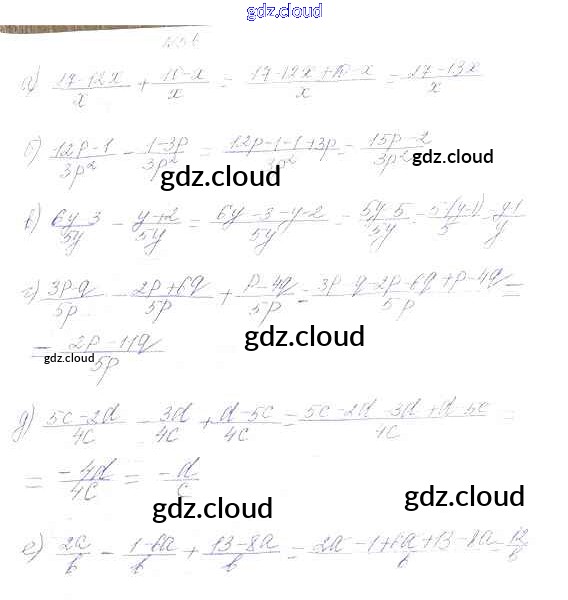 gdz.cloud
а) 17-12x/x + 10-x/x = 17-12x+10-x/x = 27-13x/x
б) 12p-1/3p² - 1-3p/3p² = 12p-1-1+3p/3p² = 15p-2/3p² gdz.cloud
gdz.cloud gdz.cloud
в) 6y-3/5y - y+2/5y = 6y-3-y-2/5y = 5y-5/5y = 5(y-1)/5 = y-1/y
г) 3p-q/5p - 2p+6q/5p + p-4q/5p = 3p-q-2p-6q+p-4q/5p =
gdz.cloud
= 2p-11q/5p
gdz.cloud
д) 5c-2d/4c - 3d/4c + d-5c/4c = 5c-2d-3d+d-5c/4c =
= -4d/4c = -d/c
gdz.cloud
gdz.cloud
е) 2a/b - 1-6a/b + 13-8a/b = 2a-1+6a+13-8a/b = 12/b